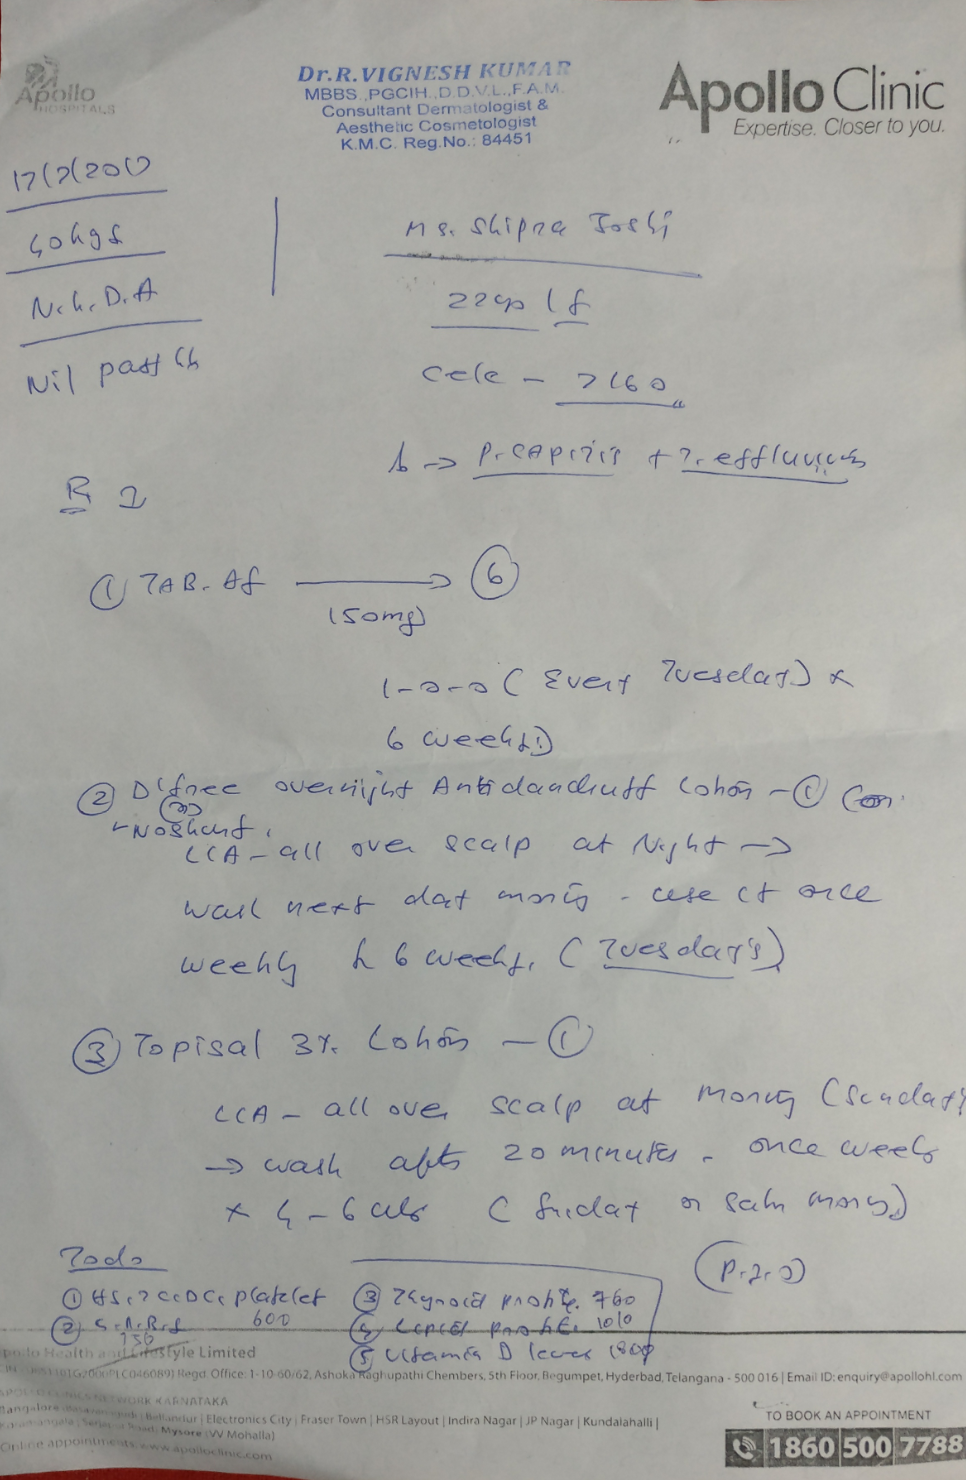 Apollo
HOSPITALS
Dr.R.VIGNESH KUMAR
MBBS.,PGCIH.,D.D.V.L.,F.A.M.
Consultant Dermatologist &
Aesthetic Cosmetologist
K.M.C. Reg.No.: 84451
Apollo Clinic
Expertise. Closer to you.
40kgs
N.k.D.A
Nil past
Ms. Shipra Joshi
22yo / f
P. CAPITIS + T. effluvium
R
① TAB. Af → ⑥
(150mg)
1-0-0 (Every Tuesday) x
6 weeks)
② overnight Antidandruff Lotion - ①
LCA - all over scalp at Night →
wash next day morning - use it once
weekly 6 weeks. (Tuesday's)
③ Topisal 3% Lotion - ①
LCA - all over scalp at morning (Sunday)
→ wash after 20 minutes. once weekly
x 4-6 (Friday or morning)
(P.T.O)
Todo
① platelet
600
②
150
③ Thyroid profile. 760
④ Lipid profile 1010
⑤ Vitamin D level
Apollo Health and Lifestyle Limited
Regd. Office: 1-10-60/62, Ashoka Raghupathi Chembers, 5th Floor, Begumpet, Hyderbad, Telangana - 500 016 | Email ID: enquiry@apollohl.com
NETWORK KARNATAKA
Bellandur | Electronics City | Fraser Town | HSR Layout | Indira Nagar | JP Nagar | Kundalahalli |
Mysore (VV Mohalla)
Online appointments: www.apolloclinic.com
TO BOOK AN APPOINTMENT
1860 500 7788